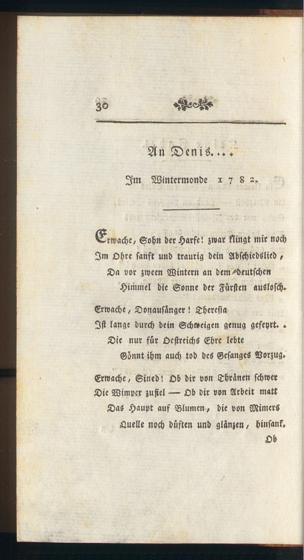 30
An Denis....
Im Wintermonde 1782.
Erwache, Sohn der Harfe! zwar klingt mir noch
Im Ohre sanft und traurig dein Abschiedslied,
Da vor zween Wintern an dem deutschen
Himmel die Sonne der Fürsten auslosch.
Erwache, Donausänger! Theresia
Ist lange durch dein Schweigen genug gefeyrt.
Die nur für Oestreichs Ehre lebte
Gönnt ihm auch tod des Gesanges Vorzug.
Erwache, Sined! Ob dir von Thränen schwer
Die Wimper zufiel — Ob dir von Arbeit matt
Das Haupt auf Blumen, die von Mimers
Quelle noch düften und glänzen, hinsank.
Ob